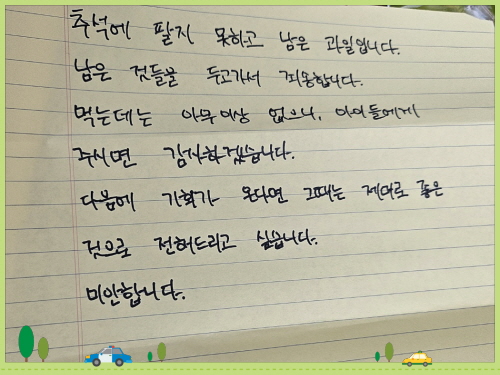 추석에 팔지 못하고 남은 과일입니다.
남은 것들을 두고가서 죄송합니다.
먹는데는 아무이상 없으니, 아이들에게
주시면 감사하겠습니다.
다음에 기회가 온다면 그때는 제대로 좋은
것으로 전해드리고 싶습니다.
미안합니다.